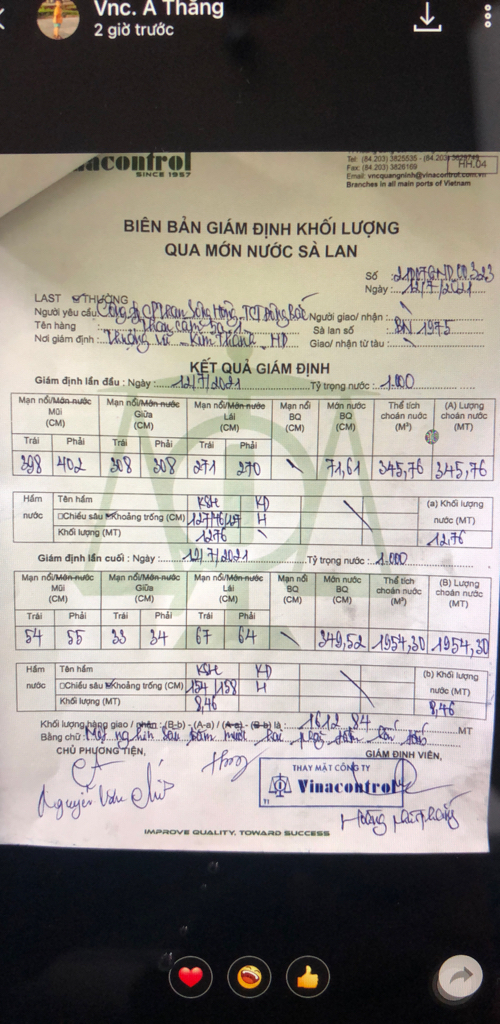 Vnc. A Thắng
2 giờ trước
nacontrol
SINCE 1957
Tel: (84.203) 3825535 -
Fax: (84.203) 3826169
HH.04
Email: vncquangninh@vinacontrol.com.vn
Branches in all main ports of Vietnam
BIÊN BẢN GIÁM ĐỊNH KHỐI LƯỢNG
QUA MỚN NƯỚC SÀ LAN
Số
Ngày: 12/7/2021
LAST THƯỜNG
Người yêu cầu Công ty CP Than Sông Hồng, TCT Đông Bắc Người giao/ nhận
Tên hàng Than cám Sà lan số BN 1975
Nơi giám định Thượng Vũ - Kim Thành - HD Giao/ nhận từ tàu
KẾT QUẢ GIÁM ĐỊNH
Giám định lần đầu : Ngày 12/7/2021 Tỷ trọng nước : 1.000
Mạn nổi/Mớn nước Mũi (CM) Mạn nổi/Mớn nước Giữa (CM) Mạn nổi/Mớn nước Lái (CM) Mạn nổi BQ (CM) Mớn nước BQ (CM) Thể tích choán nước (M³) (A) Lượng choán nước (MT)
Trái Phải Trái Phải Trái Phải
398 402 308 308 271 270 \ 71,61 345,76 345,76
Hầm nước Tên hầm KSH KD (a) Khối lượng nước (MT)
Chiều sâu Khoảng trống (CM) H
Khối lượng (MT) 12,76 \ 12,76
Giám định lần cuối : Ngày 12/7/2021 Tỷ trọng nước : 1.000
Mạn nổi/Mớn nước Mũi (CM) Mạn nổi/Mớn nước Giữa (CM) Mạn nổi/Mớn nước Lái (CM) Mạn nổi BQ (CM) Mớn nước BQ (CM) Thể tích choán nước (M³) (B) Lượng choán nước (MT)
Trái Phải Trái Phải Trái Phải
54 55 33 34 67 64 \ 349,52 1954,30 1954,30
Hầm nước Tên hầm KSH KD (b) Khối lượng nước (MT)
Chiều sâu Khoảng trống (CM) 154 158 H
Khối lượng (MT) 8,46 \ 8,46
Khối lượng hàng giao / nhận : (B-b) - (A-a) / (A-a) - (B-b) là : 1612,84 MT
Bằng chữ: Một nghìn sáu trăm mười hai phẩy tám bốn tấn
CHỦ PHƯƠNG TIỆN, GIÁM ĐỊNH VIÊN,
THAY MẶT CÔNG TY
Vinacontrol
Nguyễn Văn
Hoàng
IMPROVE QUALITY, TOWARD SUCCESS